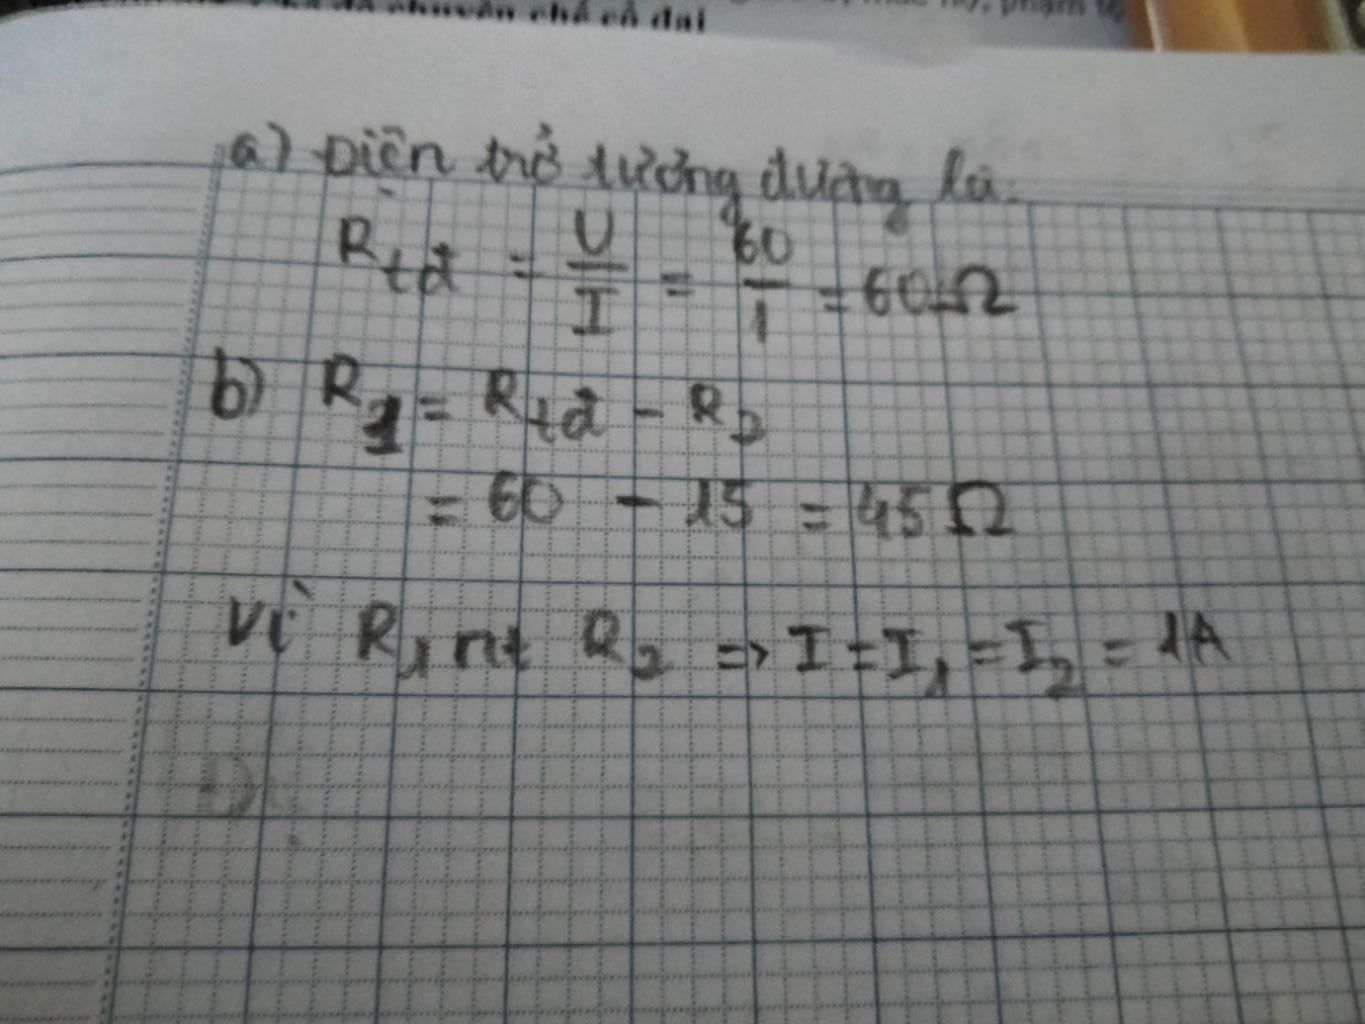 chuyên chế cổ đại
a) Điện trở tương đương là:
R_tđ = U/I = 60/1 = 60Ω
b) R_1 = R_tđ - R_2
= 60 - 15 = 45Ω
Vì R_1 nt R_2 => I = I_1 = I_2 = 1A